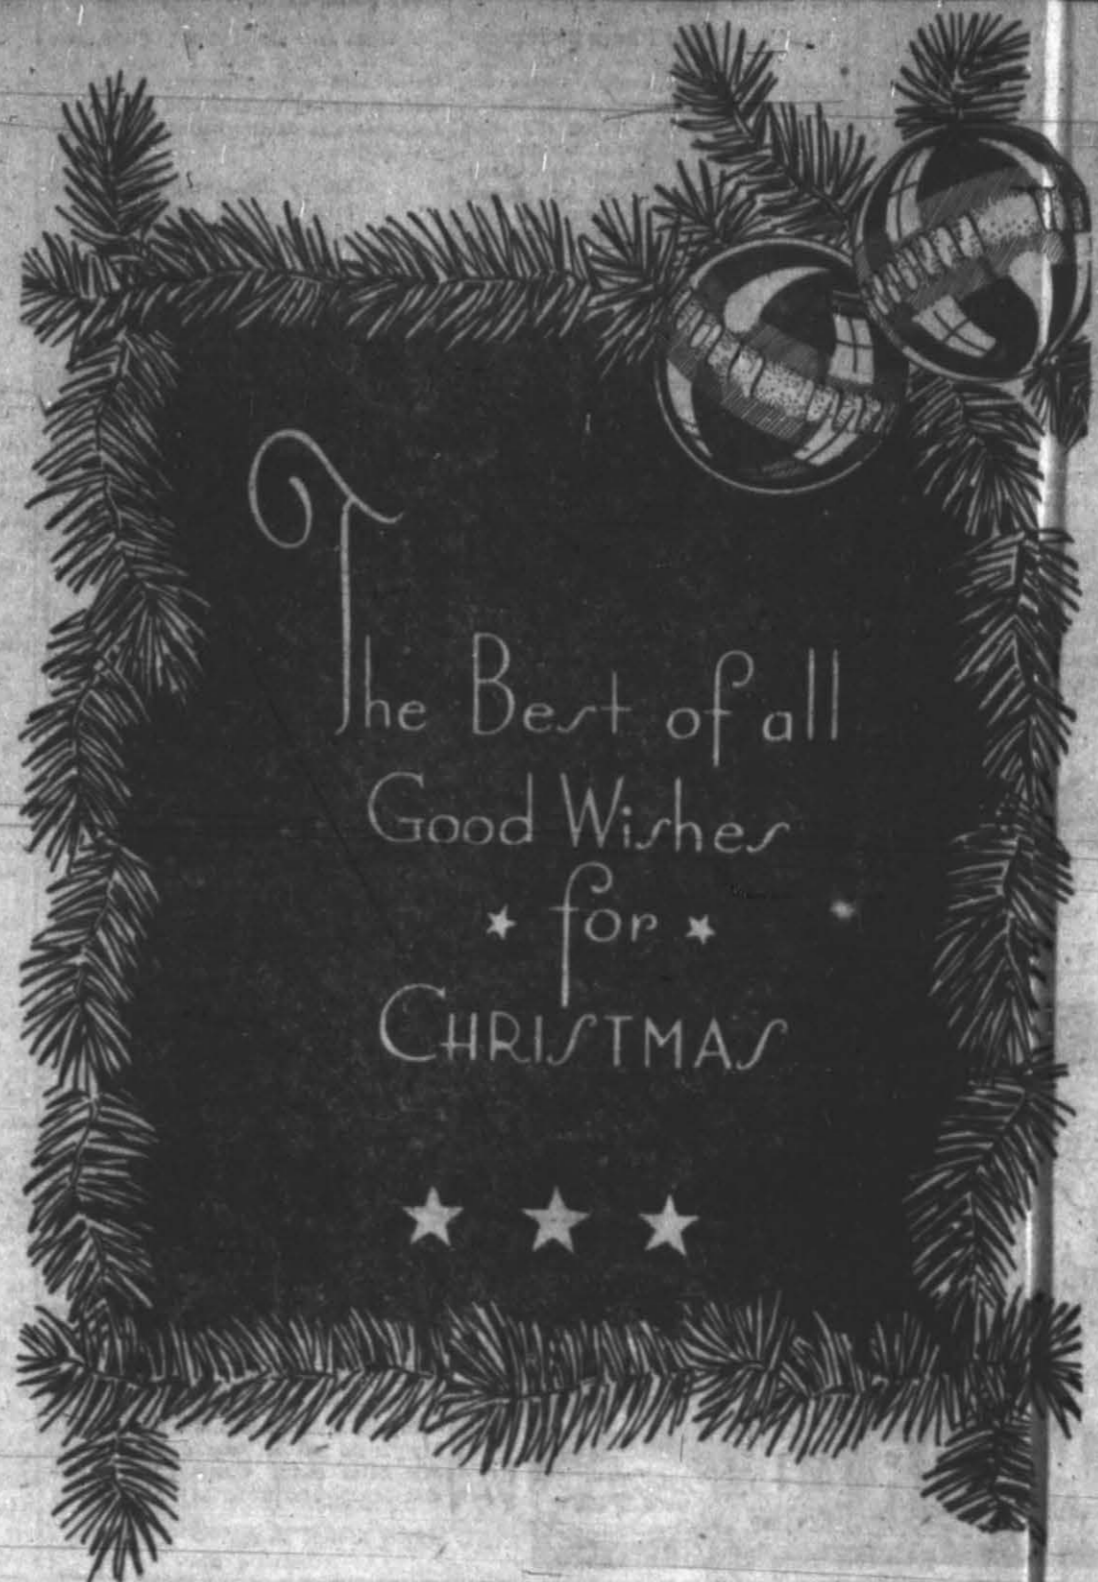 The Best of all
Good Wishes
for
CHRISTMAS